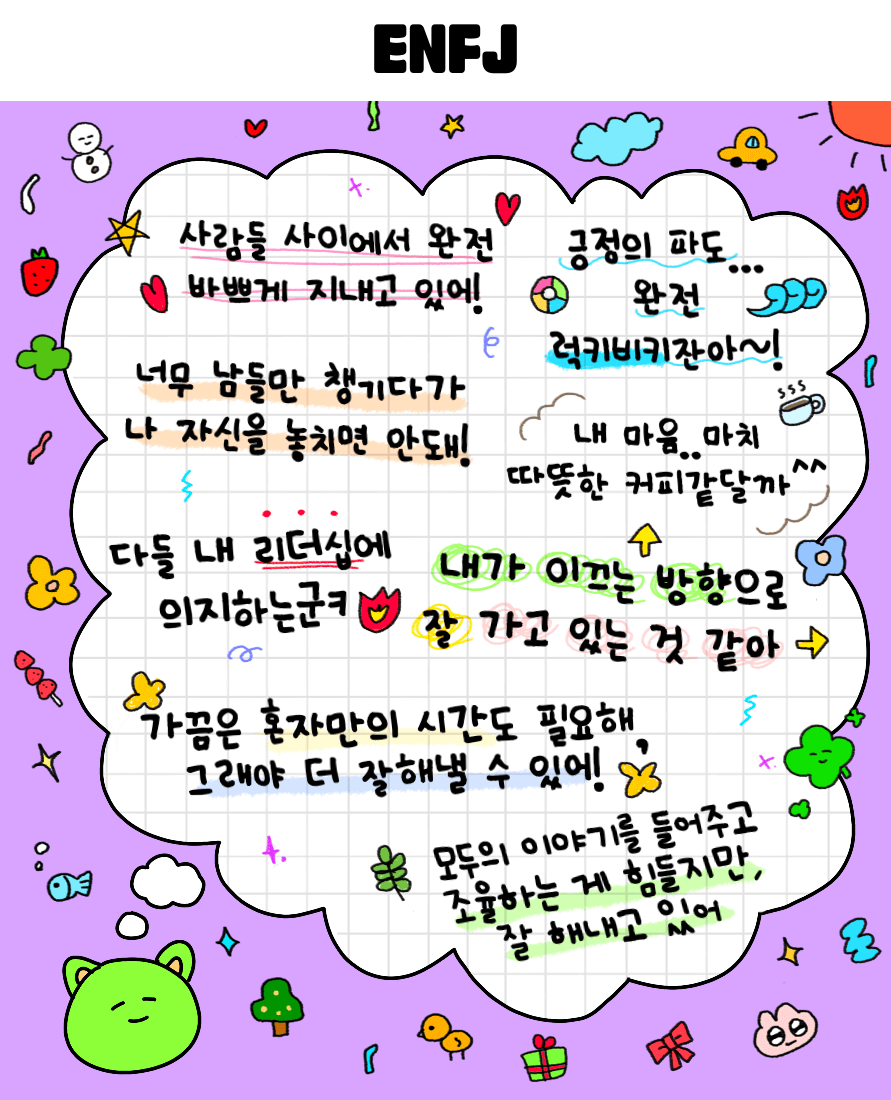 ENFJ
사람들 사이에서 완전
바쁘게 지내고 있어!
긍정의 파도...
완전
럭키비키잔아~!
너무 남들만 챙기다가
나 자신을 놓치면 안돼!
내 마음..마치
따뜻한 커피같달까^^
다들 내 리더십에
의지하는군ㅋ
내가 이끄는 방향으로
잘 가고 있는 것 같아
가끔은 혼자만의 시간도 필요해,
그래야 더 잘해낼 수 있어!
모두의 이야기를 들어주고
조율하는 게 힘들지만,
잘 해내고 있어